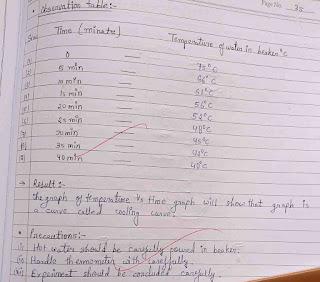 Page No. 35
• Observation table:-
S.No. Time (minute) Temperature of water in beaker °C
0 — 75°C
5 min — 66°C
10 min — 61°C
15 min — 56°C
20 min — 52°C
25 min — 48°C
30 min — 45°C
35 min
40 min — 40°C
→ Result :-
The graph of temperature Vs time graph will show that graph is
a curve called cooling curve.
• Precautions:-
(i) Hot water should be carefully poured in beaker.
(ii) Handle thermometer with carefully.
(iii) Experiment should be concluded carefully.